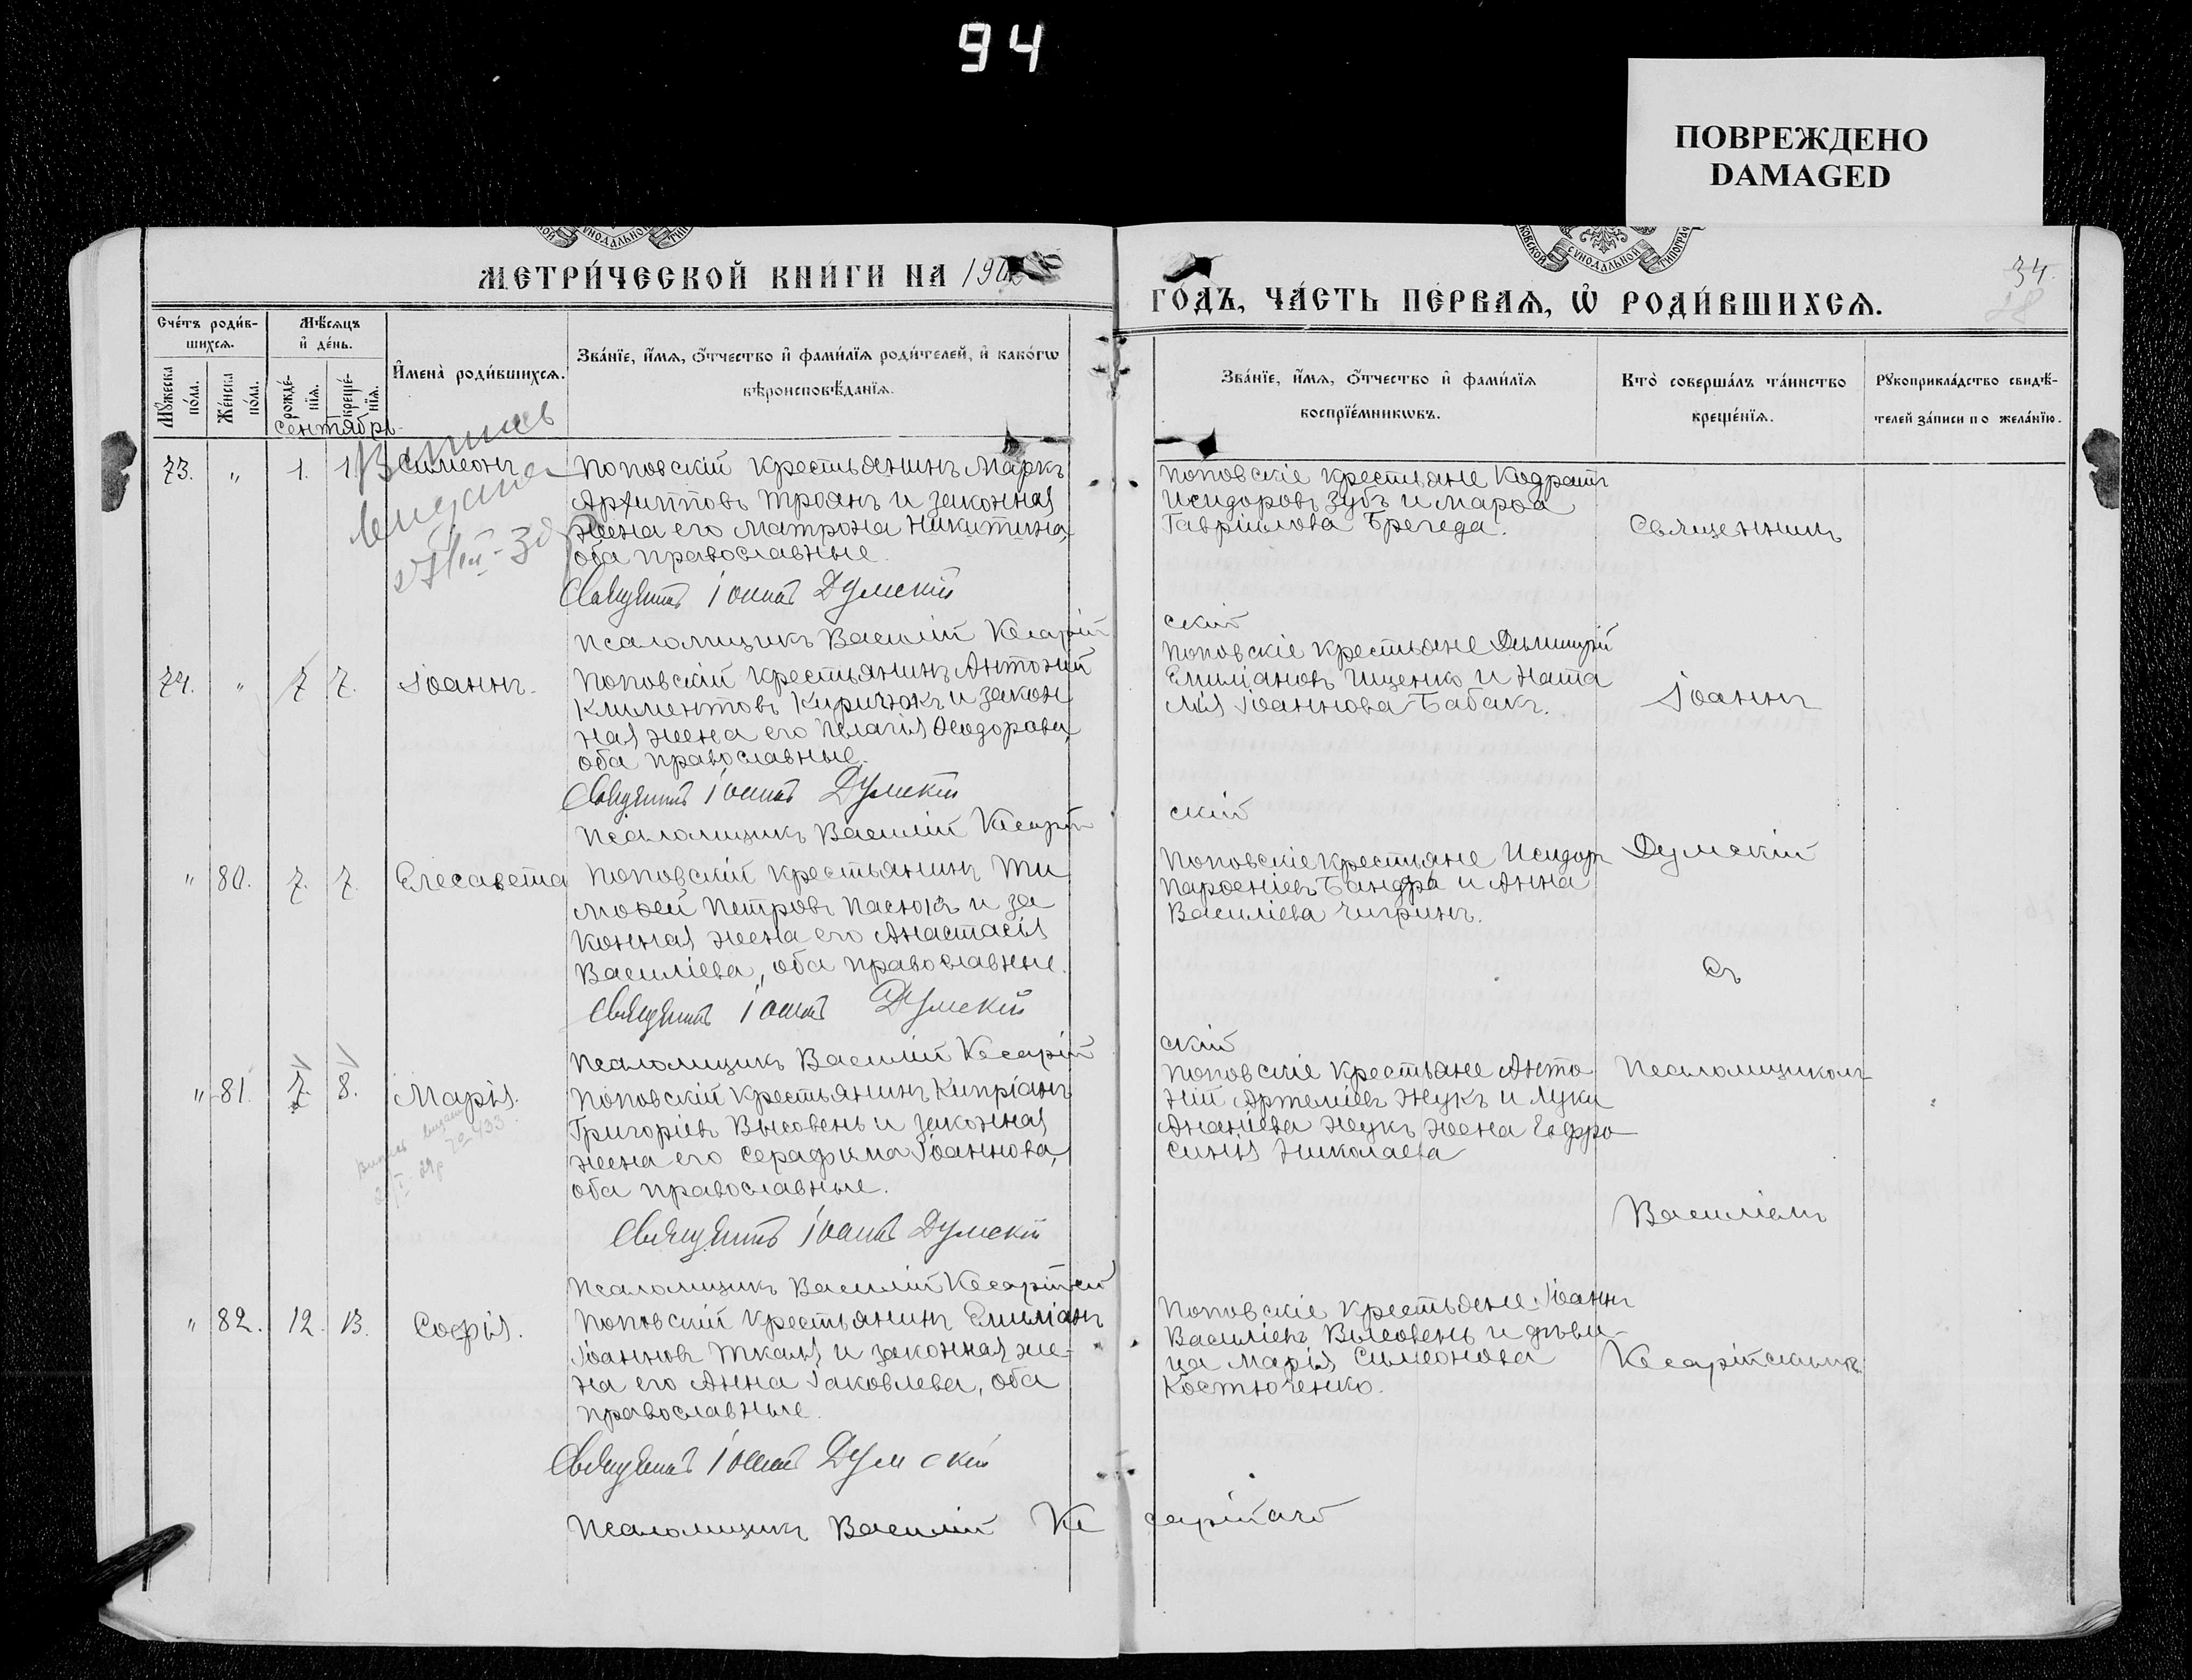 94
ПОВРЕЖДЕНО
DAMAGED
МЕТРИ́ЧЕСКОЙ КНИ́ГИ НА 190
ГО́ДЪ, ЧА́СТЬ ПЕ́РВАЯ, Ѡ҆ РОДИ́ВШИХСЯ.
34.
Сче́тъ роди́в-
шихся.
Мѣ́сяцъ
и҆ де́нь.
И҆мена̀ роди́вшихся.
Зва́нїе, и҆́мя, ѻ҆́тчество и҆ фами́лїя роди́телей, и҆ како́гѡ
вѣроисповѣ́данїя.
Мꙋ́жеска
по́ла.
Же́нска
по́ла.
рожде́-
нїя.
креще́-
нїя.
Сентябрь
Зва́нїе, и҆́мя, ѻ҆́тчество и҆ фами́лїя
воспрїе́мникѡвъ.
Кто̀ соверша́лъ та́инство
креще́нїя.
Рꙋкоприкла́дство свидѣ́-
телей за́писи по жела́нїю.
73. " 1. 1. Симеонъ
Поповскій крестьянинъ Маркъ
Архипповъ Троянъ и законная
жена его Матрона Никитина,
оба православные.
Священникъ Іоаннъ Думскій
Псаломщикъ Василій Кесарій
Поповскіе крестьяне Кодратъ
Исидоровъ Зубъ и Марѳа
Гавріилова Брегеда.
Священникъ
скій
74. " 7 7. Іоаннъ.
Поповскій крестьянинъ Антоній
Климентовъ Киричокъ и закон
ная жена его Пелагія Ѳеодорова,
оба православные.
Священникъ Іоаннъ Думскій
Псаломщикъ Василій Кесарій
Поповскіе крестьяне Димитрій
Емиліановъ Ищенко и Ната
лія Іоаннова Бабакъ.
Іоаннъ
скій
" 80. 7. 7. Елесавета
Поповскій крестьянинъ Ти
моѳей Петровъ Пасюкъ и за
конная жена его Анастасія
Василіева, оба православные.
Священникъ Іоаннъ Думскій
Псаломщикъ Василій Кесарій
Поповскіе крестьяне Исидоръ
Парѳеніевъ Бандра и Анна
Василіева Чигринъ.
Думскій
съ
скій
" 81. 7. 8. Марія.
Поповскій крестьянинъ Кипріанъ
Григоріевъ Высовень и законная
жена его Серафима Іоаннова,
оба православные.
Священникъ Іоаннъ Думскій
Псаломщикъ Василій Кесарійскій
Поповскіе крестьяне Анто
ній Артеміевъ Жукъ и Луки
Ананіева Жукъ жена Евфро
синія Николаева
Псаломщикомъ
Василіемъ
" 82. 12. 13. Софія.
Поповскій крестьянинъ Емиліанъ
Іоанновъ Ткаля и законная же-
на его Анна Іаковлева, оба
православные.
Священникъ Іоаннъ Думскій
Псаломщикъ Василій Кесарійскій
Поповскіе крестьяне Іоаннъ
Василіевъ Высовень и дѣви-
ца Марія Симеонова
Костюченко.
Кесарійскимъ